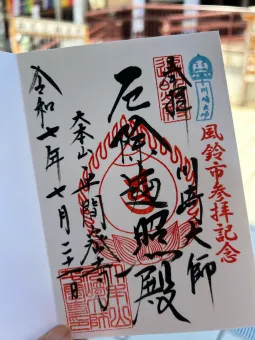 風鈴市参拝記念
川崎大師
奉拝
厄除遍照殿
大本山
平間寺
令和七年七月二十一日